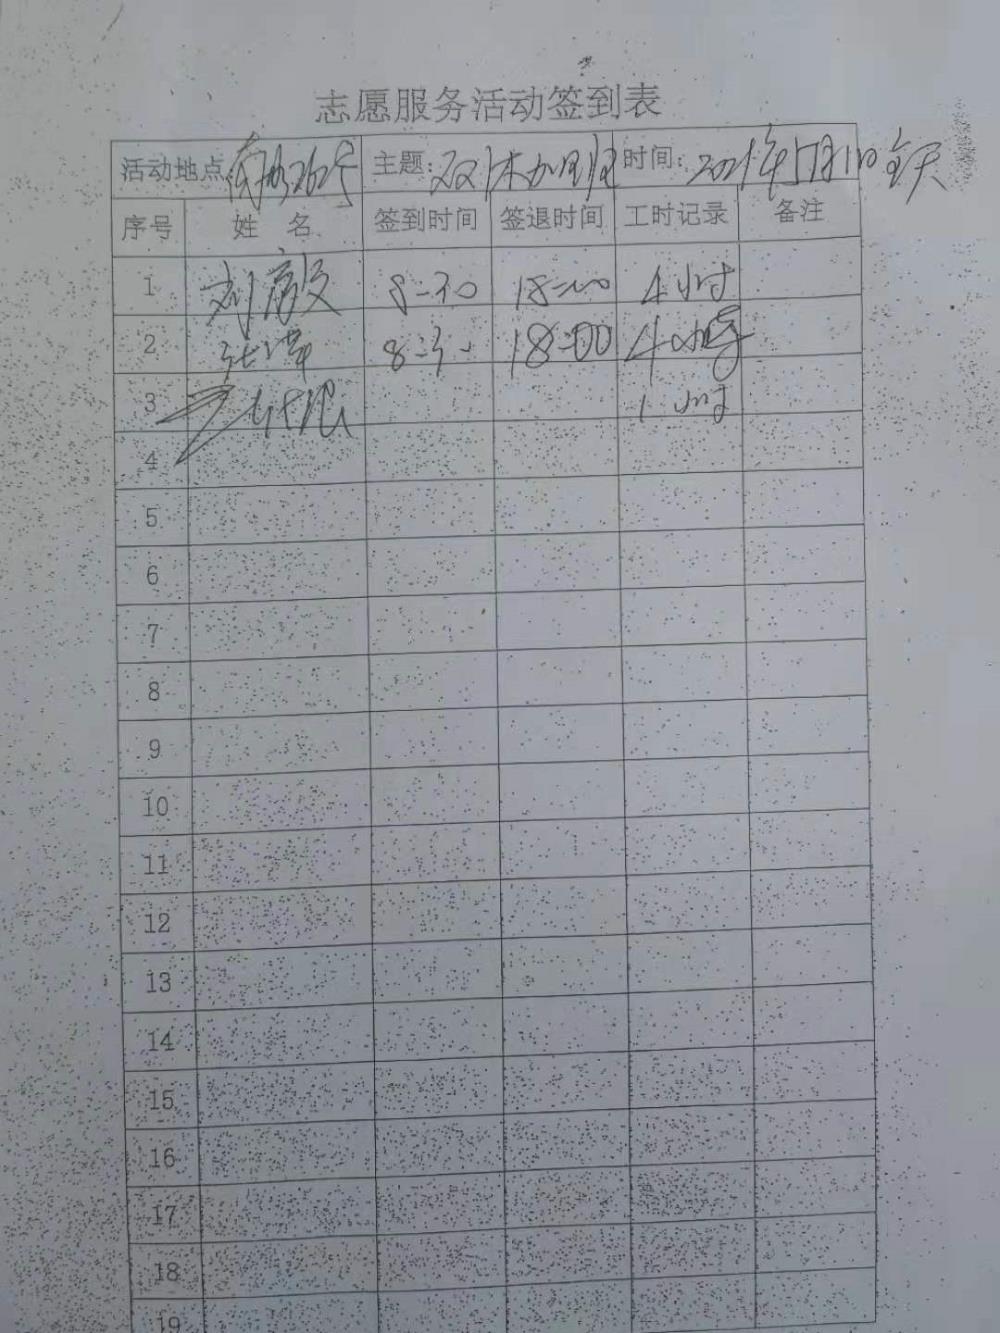 志愿服务活动签到表
活动地点 主题:双休加班 时间:2021年5月1日 全天
序号 姓 名 签到时间 签退时间 工时记录 备注
1 刘 8-30 18-00 4小时
2 8-3 18-00 4小时
3 1小时
4
5
6
7
8
9
10
11
12
13
14
15
16
17
18
19